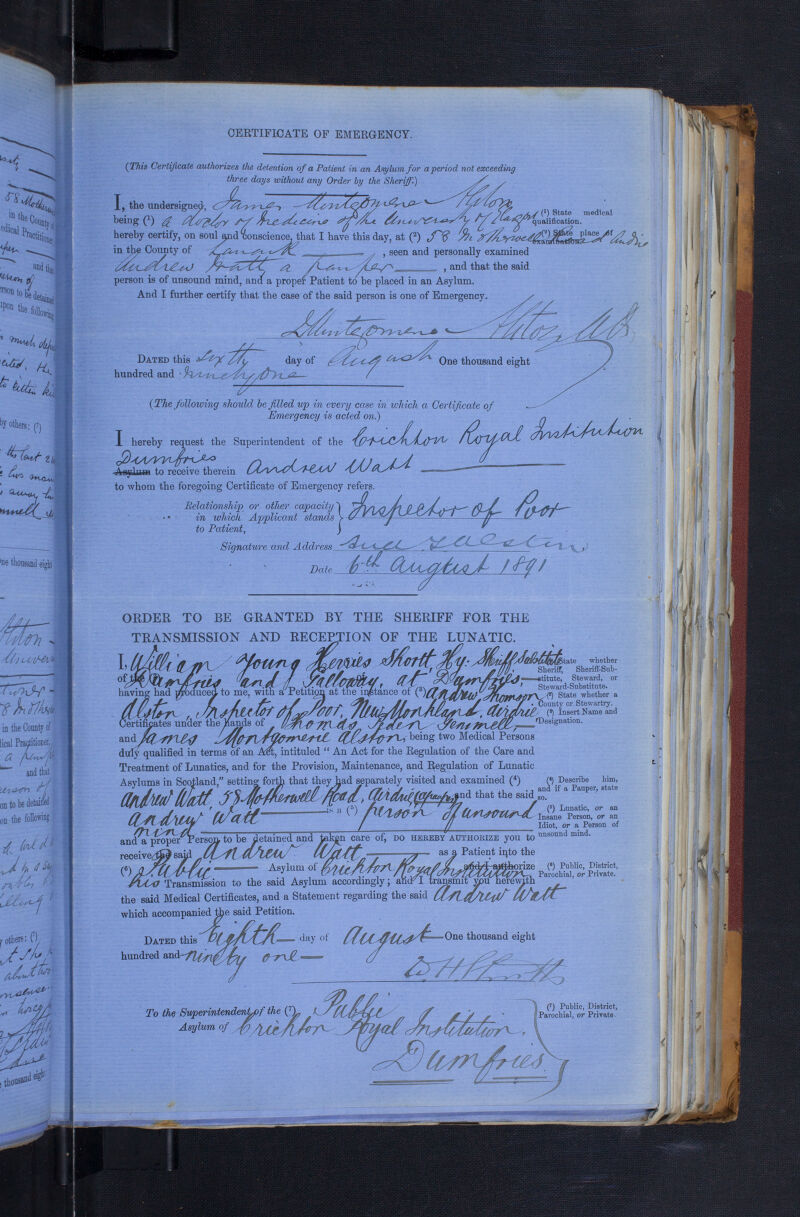 CERTIFICATE OF EMERGENCY.
(This Certificate authorizes the detention of a Patient in an Asylum for a period not exceeding
three days without any Order by the Sheriff.)
I, the undersigned, James Montgomerie Alston
being (¹) a doctor of medicine of the University of Glasgow
(¹) State medical
qualification.
hereby certify, on soul and conscience, that I have this day, at (²) 58 Motherwell Road Airdrie
(²) State place of
examination.
in the County of Lanark, seen and personally examined
Andrew Watt a pauper, and that the said
person is of unsound mind, and a proper Patient to be placed in an Asylum.
And I further certify that the case of the said person is one of Emergency.
J Montgomerie Alston
DATED this Sixth day of August One thousand eight
hundred and ninety one
(The following should be filled up in every case in which a Certificate of
Emergency is acted on.)
I hereby request the Superintendent of the Crichton Royal Institution
Dumfries
Asylum to receive therein Andrew Watt
to whom the foregoing Certificate of Emergency refers.
Relationship or other capacity
in which Applicant stands
to Patient,
Inspector of Poor
Signature and Address Alston
Date 6th August 1891
ORDER TO BE GRANTED BY THE SHERIFF FOR THE
TRANSMISSION AND RECEPTION OF THE LUNATIC.
I, William Young Herries Shortt, Hy: Sheriff Substitute
of Dumfries and Galloway, at Dumfries,
State whether
Sheriff, Sheriff-Sub-
stitute, Steward, or
Steward-Substitute.
having had produced to me, with a Petition at the instance of (³) Andrew Thomson
(²) State whether a
County or Stewartry.
Alston, Inspector of Poor, New Monkland, Airdrie
(³) Insert Name and
Designation.
Certificates under the hands of Thomas Goen Gemmell
and James Montgomerie Alston, being two Medical Persons
duly qualified in terms of an Act, intituled "An Act for the Regulation of the Care and
Treatment of Lunatics, and for the Provision, Maintenance, and Regulation of Lunatic
Asylums in Scotland," setting forth that they had separately visited and examined (⁴)
Andrew Watt, 58 Motherwell Road, Airdrie (a pauper) and that the said
(⁴) Describe him,
and if a Pauper, state
so.
Andrew Watt is a (⁵) person of unsound
mind,
(⁵) Lunatic, or an
Insane Person, or an
Idiot, or a Person of
unsound mind.
and a proper Person to be detained and taken care of, DO HEREBY AUTHORIZE you to
receive the said Andrew Watt as a Patient into the
(⁶) Public Asylum of Crichton Royal Institution and I authorize
(⁶) Public, District,
Parochial, or Private.
his Transmission to the said Asylum accordingly; and I transmit you herewith
the said Medical Certificates, and a Statement regarding the said Andrew Watt
which accompanied the said Petition.
DATED this Eighth day of August One thousand eight
hundred and ninety one
To the Superintendent of the (⁷) Public
(⁷) Public, District,
Parochial, or Private.
Asylum of Crichton Royal Institution.
Dumfries